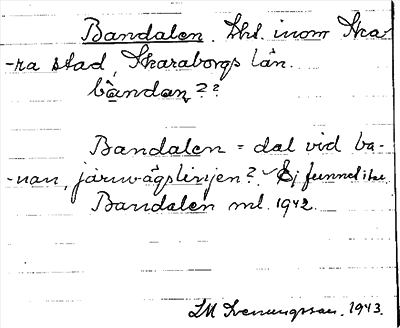 Bandalen. Lht. inom Ska-
-ra stad, Skaraborgs län.
bàndaŋ??
Bandalen = dal vid ba-
-nan, järnvägslinjen? Ej funnet ise.
Bandalen ml. 1942.
1943.